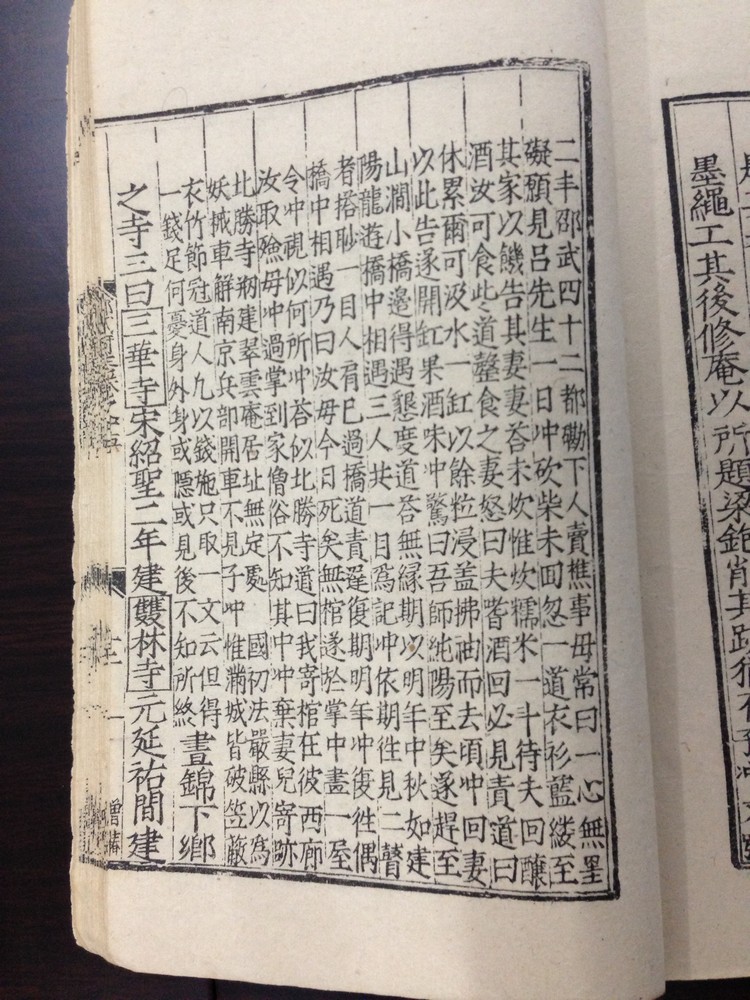 墨繩工其後修庵以所題梁鉋削其跡猶
二丰邵武四十二都勷下人賣樵事毋常曰一心無罣
礙願見呂先生一日冲砍柴未回忽一道衣衫藍縷至
其家以饑告其妻妻荅未炊惟炊糯米一斗待夫回釀
酒汝可食此道罄食之妻怒曰夫嗜酒回必見責道曰
休累爾可汲水一缸以餘粒浸盖拂袖而去頃冲回妻
以此告遂開缸果酒味冲驚曰吾師純陽至矣遂趕至
山澗小橋邊得遇懇度道荅無縁期以明年中秋如建
陽龍遊橋中相遇三人共一目為記冲依期徃見二瞽
者搭聁一目人肩巳過橋道責遲復期明年冲復徃偶
橋中相遇乃曰汝毋今日死矣無棺遂於掌中畫一屋
令冲視似何所冲荅似北勝寺道曰我寄棺在彼西廊
汝取殮毋冲過掌到家僧俗不知其中冲棄妻兒寄跡
北勝寺剏建翠雲庵居址無定處 國初法嚴縣以為
妖械車解南京兵部開車不見子冲惟滿城皆破笠蔽
衣竹節冠道人九以錢施只取一文云但得
一錢足何憂身外身或隱或見後不知所終 晝錦下鄉
之寺三曰三華寺宋紹聖二年建雙林寺元延祐間建